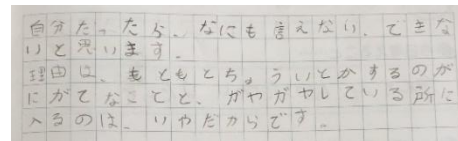 自分だったら、なにも言えない、できな
いと思います。
理由は、もともとち。ういとかするのが
にがてなことと、ガヤガヤしている所に
入るのは、いやだからです。